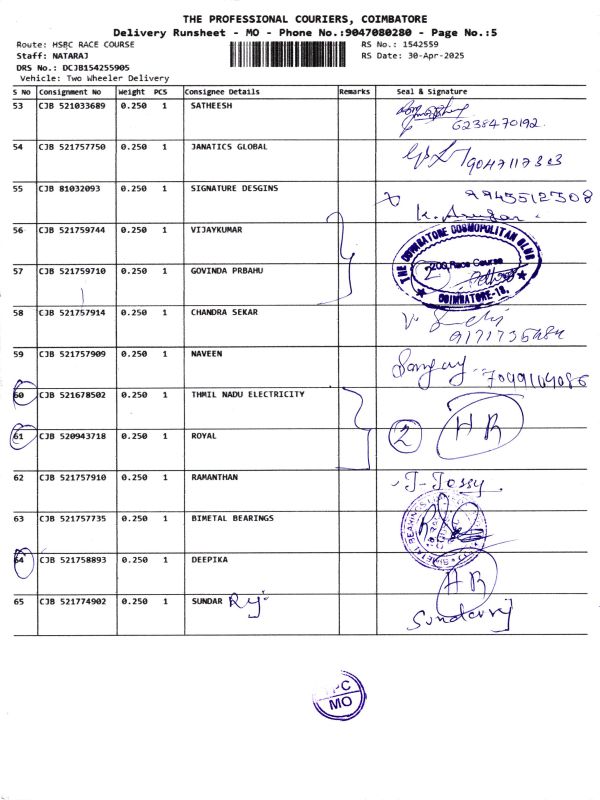 THE PROFESSIONAL COURIERS, COIMBATORE
Delivery Runsheet - MO - Phone No.:9047080280 - Page No.:5
Route: HSRC RACE COURSE RS No.: 1542559
Staff: NATARAJ RS Date: 30-Apr-2025
DRS No.: DCJB154255905
Vehicle: Two Wheeler Delivery
S No Consignment No Weight PCS Consignee Details Remarks Seal & Signature
53 CJB 521033689 0.250 1 SATHEESH
6238470192
54 CJB 521757750 0.250 1 JANATICS GLOBAL
9047117303
55 CJB 81032093 0.250 1 SIGNATURE DESGINS
9945512308
56 CJB 521759744 0.250 1 VIJAYKUMAR
THE COIMBATORE COSMOPOLITAN CLUB
2 200, Race Course
COIMBATORE-18.
57 CJB 521759710 0.250 1 GOVINDA PRBAHU
58 CJB 521757914 0.250 1 CHANDRA SEKAR
59 CJB 521757909 0.250 1 NAVEEN
Sanjay
60 CJB 521678502 0.250 1 THMIL NADU ELECTRICITY
2 HR
61 CJB 520943718 0.250 1 ROYAL
62 CJB 521757910 0.250 1 RAMANTHAN
J-Jossy
63 CJB 521757735 0.250 1 BIMETAL BEARINGS
BIMETAL BEARINGS
64 CJB 521758893 0.250 1 DEEPIKA
HR
65 CJB 521774902 0.250 1 SUNDAR Raj
Sundarraj
MO